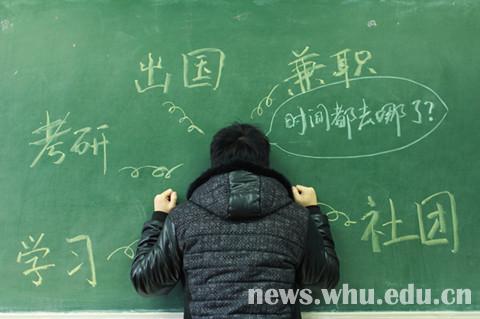 出国
兼职
时间都去哪了?
考研
学习
社团
news.whu.edu.cn